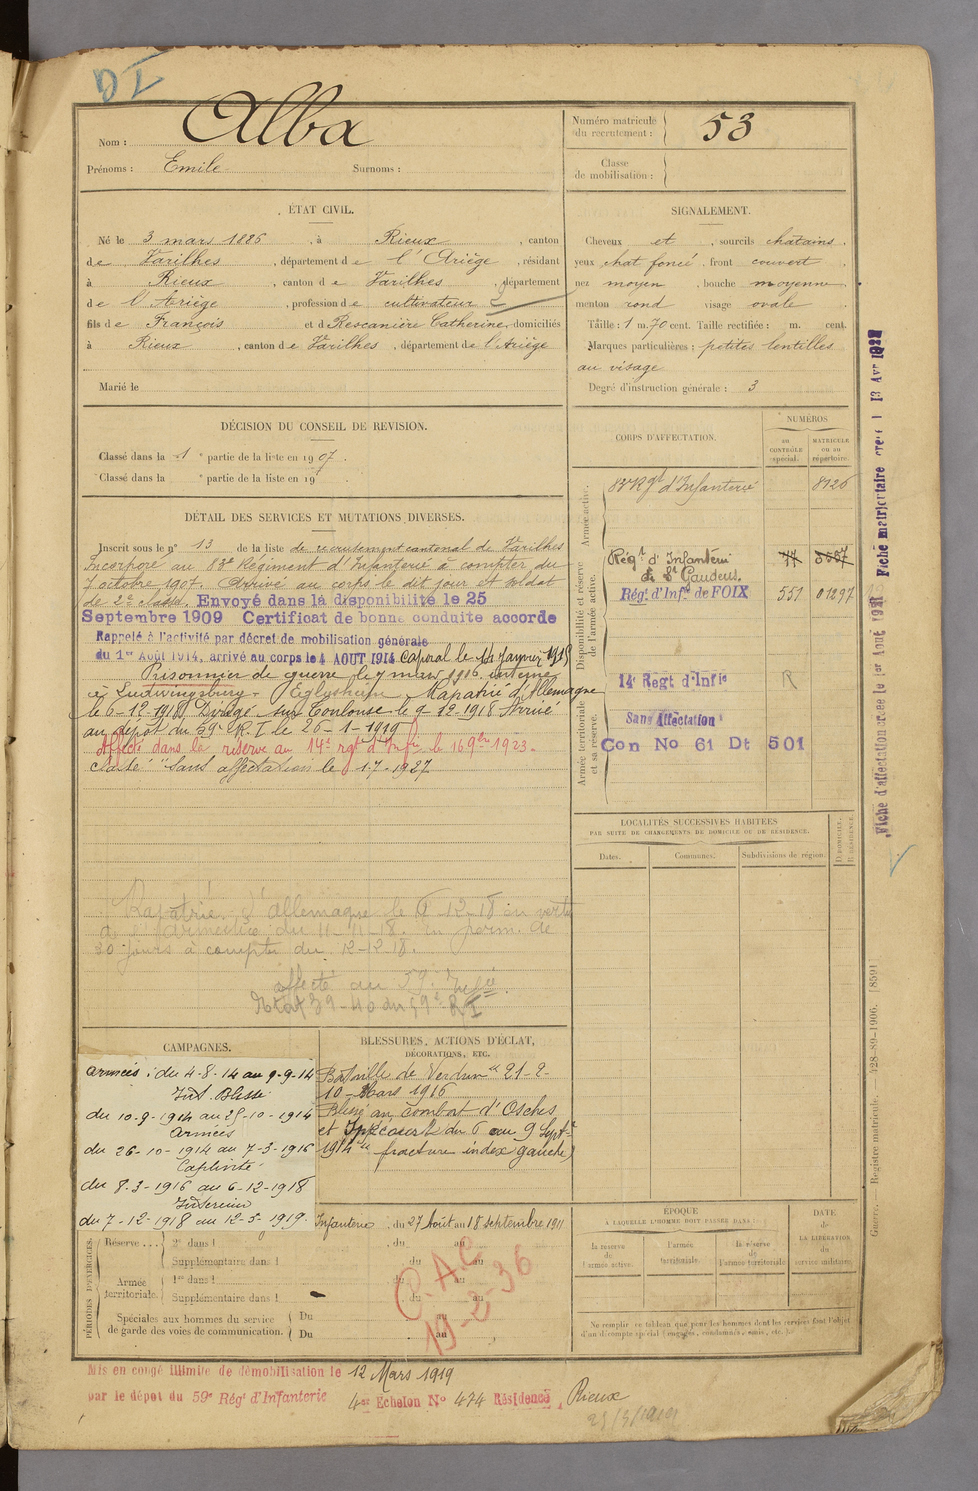 DI
Nom : Alba
Prénoms : Emile Surnoms :
Numéro matricule du recrutement : 53
Classe de mobilisation :
ÉTAT CIVIL.
Né le 3 mars 1886, à Rieux, canton
de Varilhes, département de l'Ariège, résidant
à Rieux, canton de Varilhes, département
de l'Ariège, profession de cultivateur
fils de François et d Rescanière Catherine, domiciliés
à Rieux, canton de Varilhes, département de l'Ariège
Marié le
SIGNALEMENT.
Cheveux et, sourcils chatains,
yeux chat foncé, front couvert,
nez moyen, bouche moyenne,
menton rond visage ovale
Taille : 1 m. 70 cent. Taille rectifiée : m. cent.
Marques particulières : petites lentilles
au visage
Degré d'instruction générale : 3
DÉCISION DU CONSEIL DE REVISION.
Classé dans la 1e partie de la liste en 1907.
Classé dans la e partie de la liste en 19
DÉTAIL DES SERVICES ET MUTATIONS DIVERSES.
Inscrit sous le n° 13 de la liste de recrutement cantonal de Varilhes
Incorporé au 83e Régiment d'Infanterie à compter du
7 octobre 1907. Arrivé au corps le dit jour et soldat
de 2e classe. Envoyé dans la disponibilité le 25
Septembre 1909 Certificat de bonne conduite accordé
Rappelé à l'activité par décret de mobilisation générale
du 1er Août 1914, arrivé au corps le 4 AOUT 1914 Caporal le 14 Janvier 1915
Prisonnier de guerre le 7 mars 1916. interné
à Ludwingsburg - Eglysheim Rapatrié d'Allemagne
le 6-12-1918 Dirigé sur Toulouse le 9-12-1918 Arrivé
au dépôt du 59e R.I le 20-1-1919
Affecté dans la réserve au 14e rgt d'Infie le 16 9bre 1923.
Classé "Sans affectation" le 1-7-1927
Rapatrié d'Allemagne le 6-12-18 en vertu
de l'armistice du 11-11-18. En perm. de
30 jours à compter du 12-12-18.
affecté au 59e Infie.
39-40 du 59e RI
CORPS D'AFFECTATION.
NUMÉROS
AU CONTRÔLE spécial.
MATRICULE ou au répertoire.
Armée active.
83e Rgt d'Infanterie 8126
Disponibilité et réserve de l'armée active.
Régt d'Infanterie
de St Gaudens.
Régt d'Infie de FOIX 551 01297
Armée territoriale et sa réserve.
14e Regt d'Infie R
Sans Affectation
Con No 61 Dt 501
LOCALITÉS SUCCESSIVES HABITÉES
PAR SUITE DE CHANGEMENTS DE DOMICILE OU DE RÉSIDENCE.
Dates. Communes. Subdivisions de région.
D. DOMICILE. R. RÉSIDENCE.
CAMPAGNES.
Armées : du 4-8-14 au 9-9-14
Int. Blessé
du 10-9-1914 au 25-10-1914
Armées
du 26-10-1914 au 7-3-1916
Captivité
du 8-3-1916 au 6-12-1918
Intérieur
du 7-12-1918 au 12-3-1919.
BLESSURES, ACTIONS D'ÉCLAT,
DÉCORATIONS, ETC.
Bataille de Verdun du 21-2-
10-Mars 1916
Blessé au combat d'Osches
et Ippécourt du 6 au 9 Septre
1914 (fracture index gauche)
PÉRIODES D'EXERCICES.
Infanterie, du 27 Août au 18 septembre 1911
Réserve ... 2e dans l
Supplémentaire dans l
Armée territoriale. 1re dans l
Supplémentaire dans l
du au
du au
du au
du au
Spéciales aux hommes du service de garde des voies de communication. Du au
Du au
P.A.C
19-2-36
ÉPOQUE
À LAQUELLE L'HOMME DOIT PASSER DANS :
la réserve de l'armée active.
l'armée territoriale.
la réserve de l'armée territoriale.
DATE de LA LIBÉRATION du service militaire.
Ne remplir ce tableau que pour les hommes dont les services font l'objet
d'un décompte spécial (engagés, condamnés, omis, etc.).
Mis en congé illimité de démobilisation le 12 Mars 1919
par le dépot du 59e Régt d'Infanterie 4me Echelon No 474 Résidence, Rieux
Fiche d'affectation créée le 1er Août 1921 Fiche matriculaire créée l 13 Avr 1922
Guerre. — Registre matricule. — 428-89-1906. [8591]